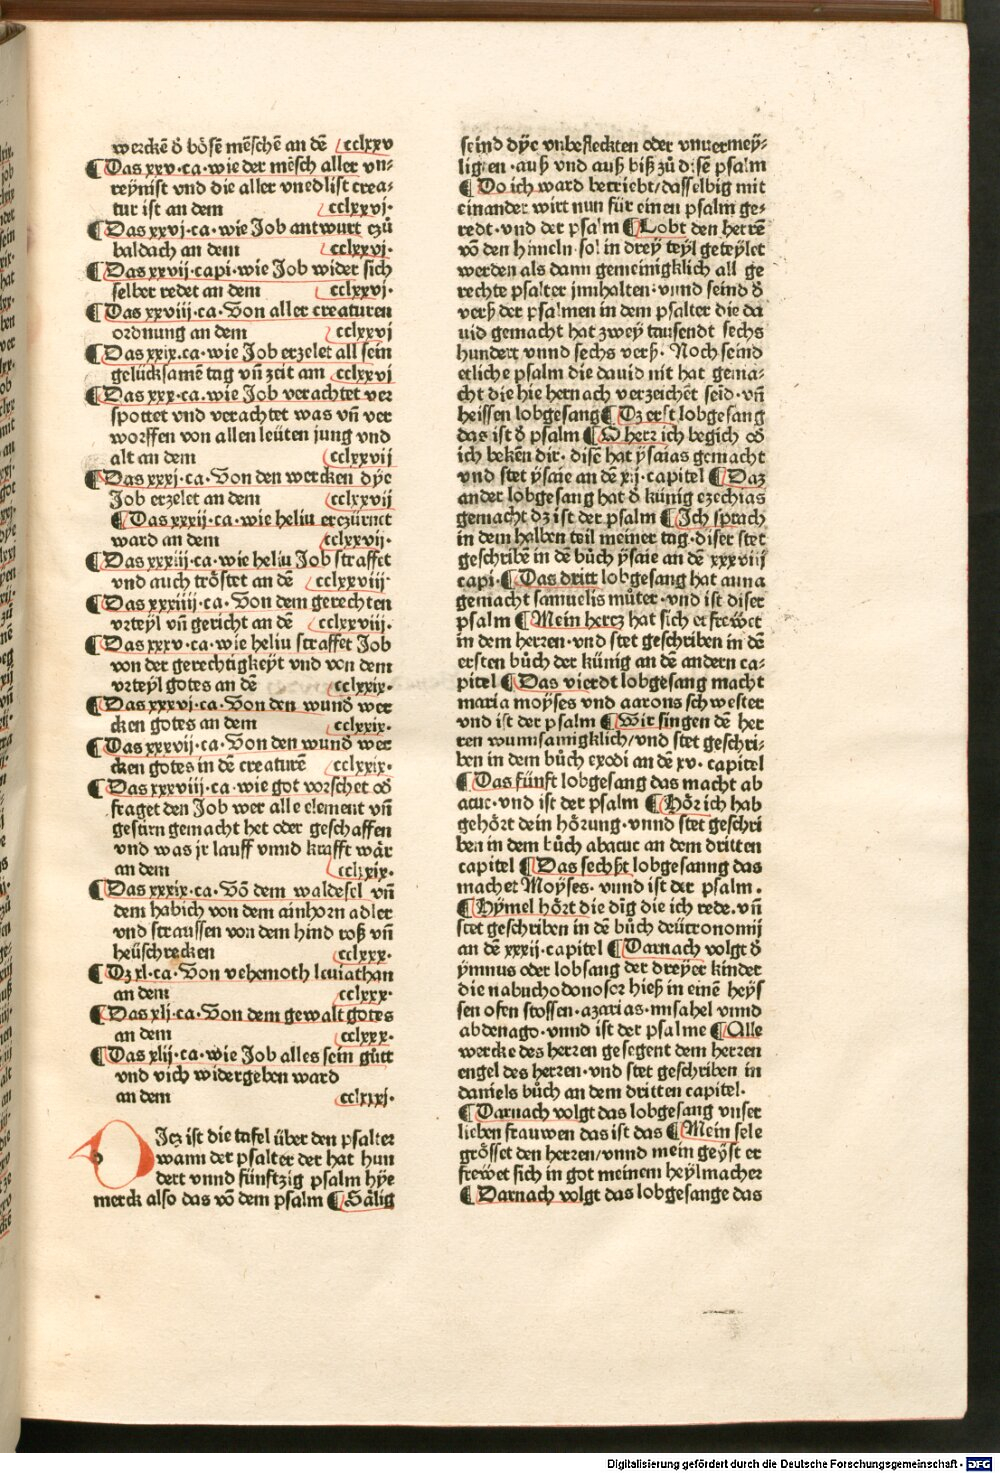 werckē ď bösē mēschē an dē cclxxv
¶ Das xxv·ca·wie der mēsch aller vn⸗
reynist vnd die aller vnedlist crea⸗
tur ist an dem cclxxvj·
¶ Das xxvj·ca·wie Job antwurt czů
baldach an dem cclxxvj·
¶ Das xxvij·capi·wie Job wider sich
selber redet an dem cclxxvj·
¶ Das xxviij·ca·Von aller creaturen
ordnung an dem cclxxvj
¶ Das xxix·ca·wie Job erzelet all sein
gelücksamē tag vñ zeit am cclxxvj
¶ Das xxx·ca·wie Job verachtet ver
spottet vnd verachtet was vñ ver
worffen von allen leüten jung vnd
alt an dem cclxxvij
¶ Das xxxj·ca·Von den wercken dye
Job erzelet an dem cclxxvij
¶ Das xxxij·ca·wie heliu erczürnct
ward an dem cclxxvij·
¶ Das xxxiij·ca·wie heliu Job straffet
vnd auch tröstet an dē cclxxviij·
¶ Das xxxiiij·ca·Von dem gerechten
vrteyl vñ gericht an dē cclxxviij·
¶ Das xxxv·ca·wie heliu straffet Job
von der gerechtigkeyt vnd von dem
vrteyl gotes an dē cclxxix·
¶ Das xxxvj·ca·Von den wunď wer
cken gotes an dem cclxxix·
¶ Das xxxvij·ca·Von den wunď wer
cken gotes in dē creaturē cclxxix·
¶ Das xxxviij·ca·wie got vorschet oď
fraget den Job wer alle element vñ
gestirn gemacht het oder geschaffen
vnd was jr lauff vnnd krafft wär
an dem cclxxix·
¶ Das xxxix·ca·Vō dem waldesel vñ
dem habich von dem ainhorn adler
vnd straussen von dem hind roß vñ
heüschrecken cclxxx·
¶ Dz xl·ca·Von vehemoth leuiathan
an dem cclxxx·
¶ Das xlj·ca·Von dem gewalt gotes
an dem cclxxx·
¶ Das xlij·ca·wie Job alles sein gůtt
vnd vich widergeben ward
an dem cclxxxj·
Jcz ist die tafel über den psalter
wann der psalter der hat hun
dert vnnd fünftzig psalm hye
merck also das vō dem psalm ¶ Sälig
seind dye vnbefleckten oder vnuermey⸗
ligten·auß vnd auß biß zů disē psalm
¶ Do ich ward betriebt/dasselbig mit
einander wirt nun für einen psalm ge⸗
redt·vnd der psalm ¶ Lobt den herrē
vō den himeln·sol in drey teyl geteylet
werden als dann gemeinigklich all ge
rechte psalter jnnhalten·vnnd seind ď
verß der psalmen in dem psalter die da
uid gemacht hat zwey tausendt sechs
hundert vnnd sechs verß·Noch seind
etliche psalm die dauid nit hat gema⸗
cht die hie hernach verzeichēt seid·vñ
heissen lobgesang ¶ Dz erst lobgesang
das ist ď psalm ¶ O herr ich begich oď
ich bekēn dir·disē hat ysaias gemacht
vnd stet ysaie an dē xij·capitel ¶ Daz
ander lobgesang hat ď künig ezechias
gemacht dz ist der psalm ¶ Ich sprach
in dem halben teil meiner tag·diser stet
geschribē in dē bůch ysaie an dē xxxviij
capi·¶ Das dritt lobgesang hat anna
gemacht samuelis můter·vnd ist diser
psalm ¶ Mein hertz hat sich erfrewet
in dem herren·vnd stet geschriben in dē
ersten bůch der künig an dē andern ca⸗
pitel ¶ Das vierdt lobgesang macht
maria moyses vnd aarons schwester
vnd ist der psalm ¶ Wir singen dē her
ren wunnsamigklich/vnd stet geschri⸗
ben in dem bůch exodi an dē xv·capitel
¶ Das fünft lobgesang das macht ab
acuc·vnd ist der psalm ¶ Hör ich hab
gehört dein hörung·vnnd stet geschri
ben in dem bůch abacuc an dem dritten
capitel ¶ Das sechßt lobgesanng das
machet Moyses·vnnd ist der psalm·
¶ Hymel hört die dīg die ich rede·vñ
stet geschriben in dē bůch deütronomij
an dē xxxij·capitel ¶ Darnach volgt ď
ymnus oder lobsang der dreyer kinder
die nabuchodonosor hieß in einē heys
sen ofen stossen·azarias·misahel vnnd
abdenago·vnnd ist der psalme ¶ Alle
wercke des herren gesegent dem herren
engel des herren·vnd stet geschriben in
daniels bůch an dem dritten capitel·
¶ Darnach volgt das lobgesang vnser
lieben frauwen das ist das ¶ Mein sele
grösset den herren/vnnd mein geyst er
frewet sich in got meinem heylmacher
¶ Darnach volgt das lobgesange das
Digitalisierung gefördert durch die Deutsche Forschungsgemeinschaft - DFG